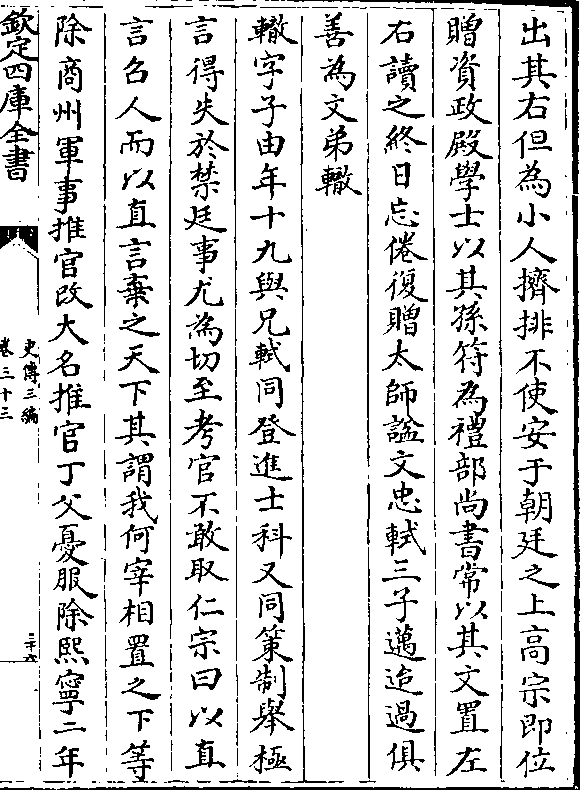 出其右但為小人擠排不使安于朝廷之上高宗即位
贈資政殿學士以其孫符為禮部尚書常以其文置左
右讀之終日忘倦復贈太師諡文忠軾三子邁迨過俱
善為文弟轍
轍字子由年十九與兄軾同登進士科又同策制舉極
言得失於禁廷事尤為切至考官不敢取仁宗曰以直
言名人而以直言棄之天下其謂我何宰相置之下等
除商州軍事推官改大名推官丁父憂服除熙寧二年
欽定四庫全書
史傳三編
卷三十三
三十六